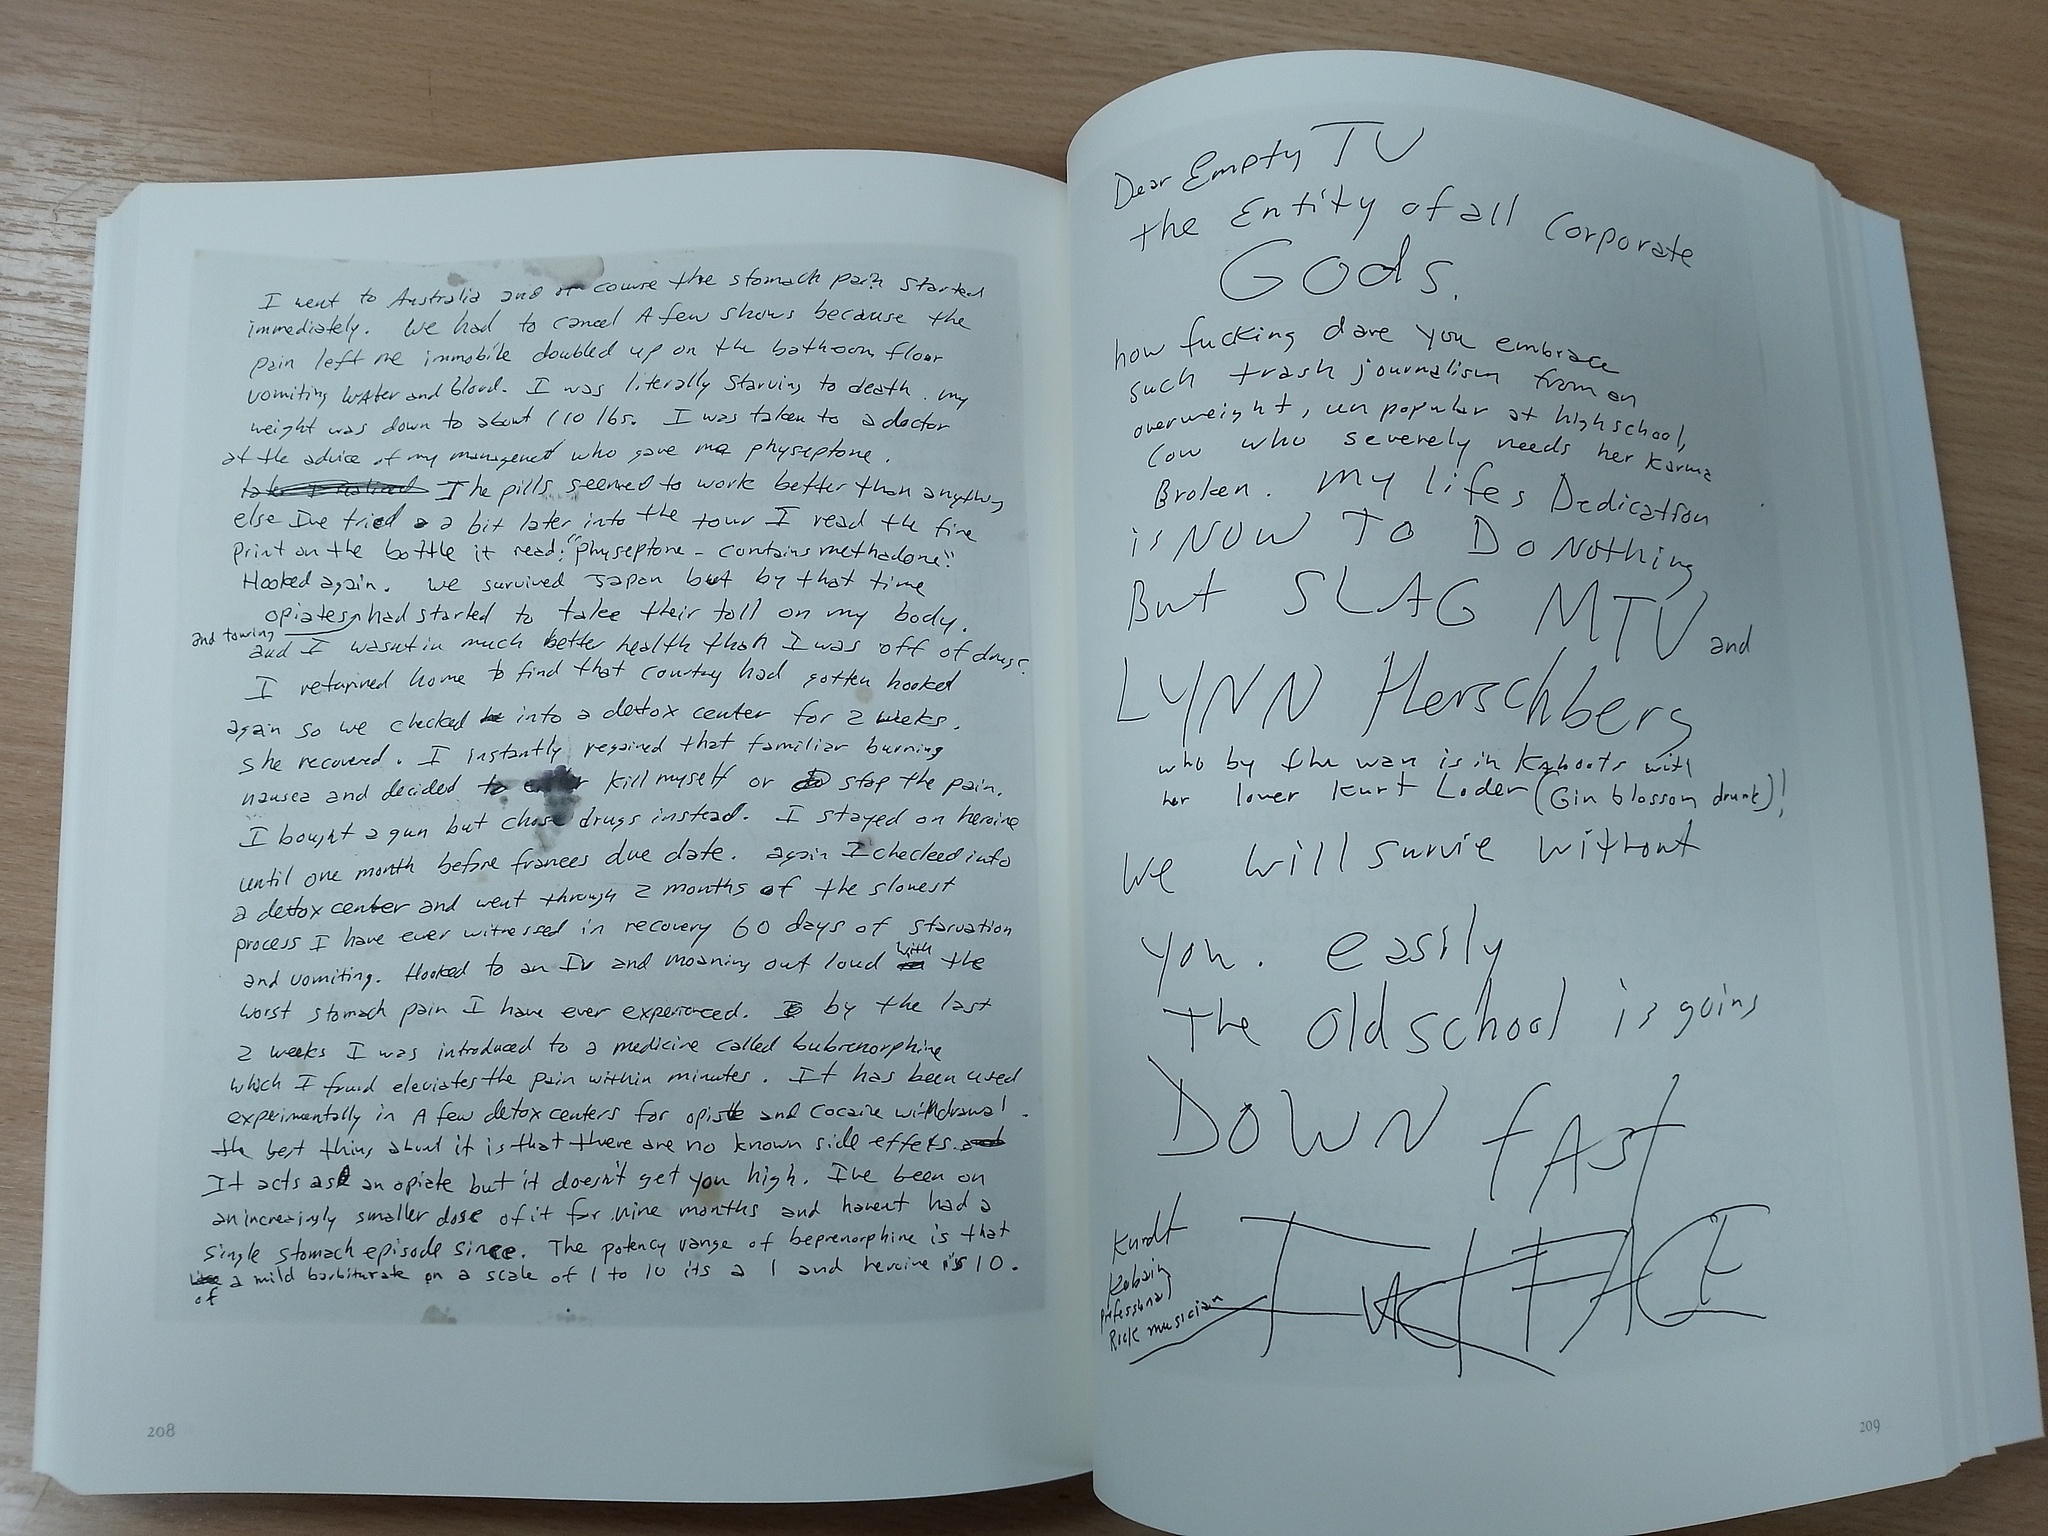 I went to Australia and of course the stomach pain started
immediately. We had to cancel A few shows because the
pain left me immobile doubled up on the bathoom floor
vomiting WAter and blood. I was literally Starving to death. my
weight was down to about 110 lbs. I was taken to a doctor
at the advice of my management who gave me physeptone.
later I realized The pills seemed to work better than anything
else I've tried a bit later into the tour I read the fine
print on the bottle it read: "physeptone - contains methadone"!
Hooked again. We survived Japan but by that time
opiates had started to take their toll on my body.
and touring
and I wasnt in much better health than I was off of drugs.
I returned home to find that Courtney had gotten hooked
again so we checked into a detox center for 2 weeks.
she recovered. I instantly regained that familiar burning
nausea and decided to kill myself or stop the pain.
I bought a gun but chose drugs instead. I stayed on heroine
until one month before frances due date. again I checked into
a detox center and went through 2 months of the slowest
process I have ever witnessed in recovery 60 days of starvation
and vomiting. Hooked to an IV and moaning out loud with the
worst stomach pain I have ever experienced. by the last
2 weeks I was introduced to a medicine called bubrenorphine
which I found eleviates the pain within minutes. It has been used
experimentally in A few detox centers for opiate and cocaine withdrawal.
the best thing about it is that there are no known side effets.
It acts as an opiate but it doesn't get you high. I've been on
an increasingly smaller dose of it for nine months and havent had a
single stomach episode since. The potency range of beprenorphine is that
of a mild barbiturate on a scale of 1 to 10 its a 1 and heroine is 10.
208
Dear Empty TV
the Entity of all Corporate
Gods.
how fucking dare you embrace
such trash journalism from an
overweight, un popular at highschool,
Cow who severely needs her Karma
Broken. My lifes Dedication
is NOW TO Do Nothing
But SLAG MTV and
LYNN Herschberg
who by the way is in Kahoots with
her lover Kurt Loder (Gin blossom drunk)!
We will survie without
you. easily
the oldschool is going
DOWN fAst
Kurdt
Kobain
professional
Rock musician
FuckFACE
209